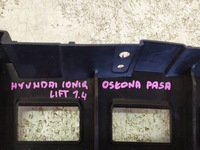 HYUNDAI IONIQ OSŁONA PASA
LIFT 1.4